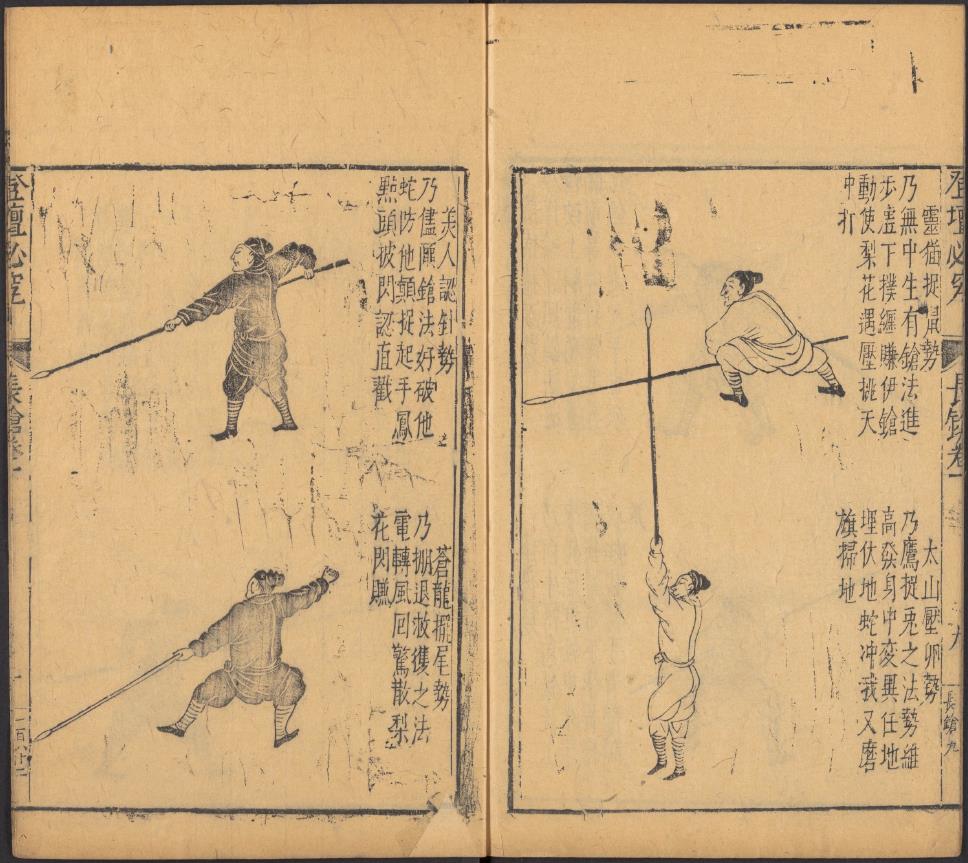 登壇必究
長鎗卷一
長鎗九
靈猫捉鼠勢
乃無中生有鎗法進
步虛下撲纏賺伊鎗
動使梨花遇壓挑天
中打
太山壓卵勢
乃鷹捉兎之法勢維
高發身中変異任地
埋伏地蛇冲我又磨
旗掃地
美人認針勢
乃儘匾鎗法好破他
蛇防他顛捉起手鳳
點頭披閃認直戳
蒼龍擺尾勢
乃掤退救護之法
電轉風回驚散梨
花閃賺
登壇必究
長鎗卷一